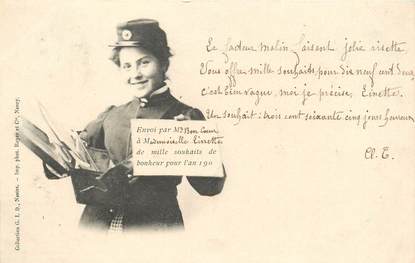 Le facteur malin, faisant jolie risette
Vous offre mille souhaits, pour dix neuf cent deux,
c'est bien vague, moi je précise, Linette,
Un souhait: trois cent soixante cinq jours heureux
Cl. T.
Envoi par Mr Bon Cœur
à Mademoiselle Linette
de mille souhaits de
bonheur pour l'an 190
Collection G. I. D., Nantes. - Imp. phot. Royer et Cie, Nancy.